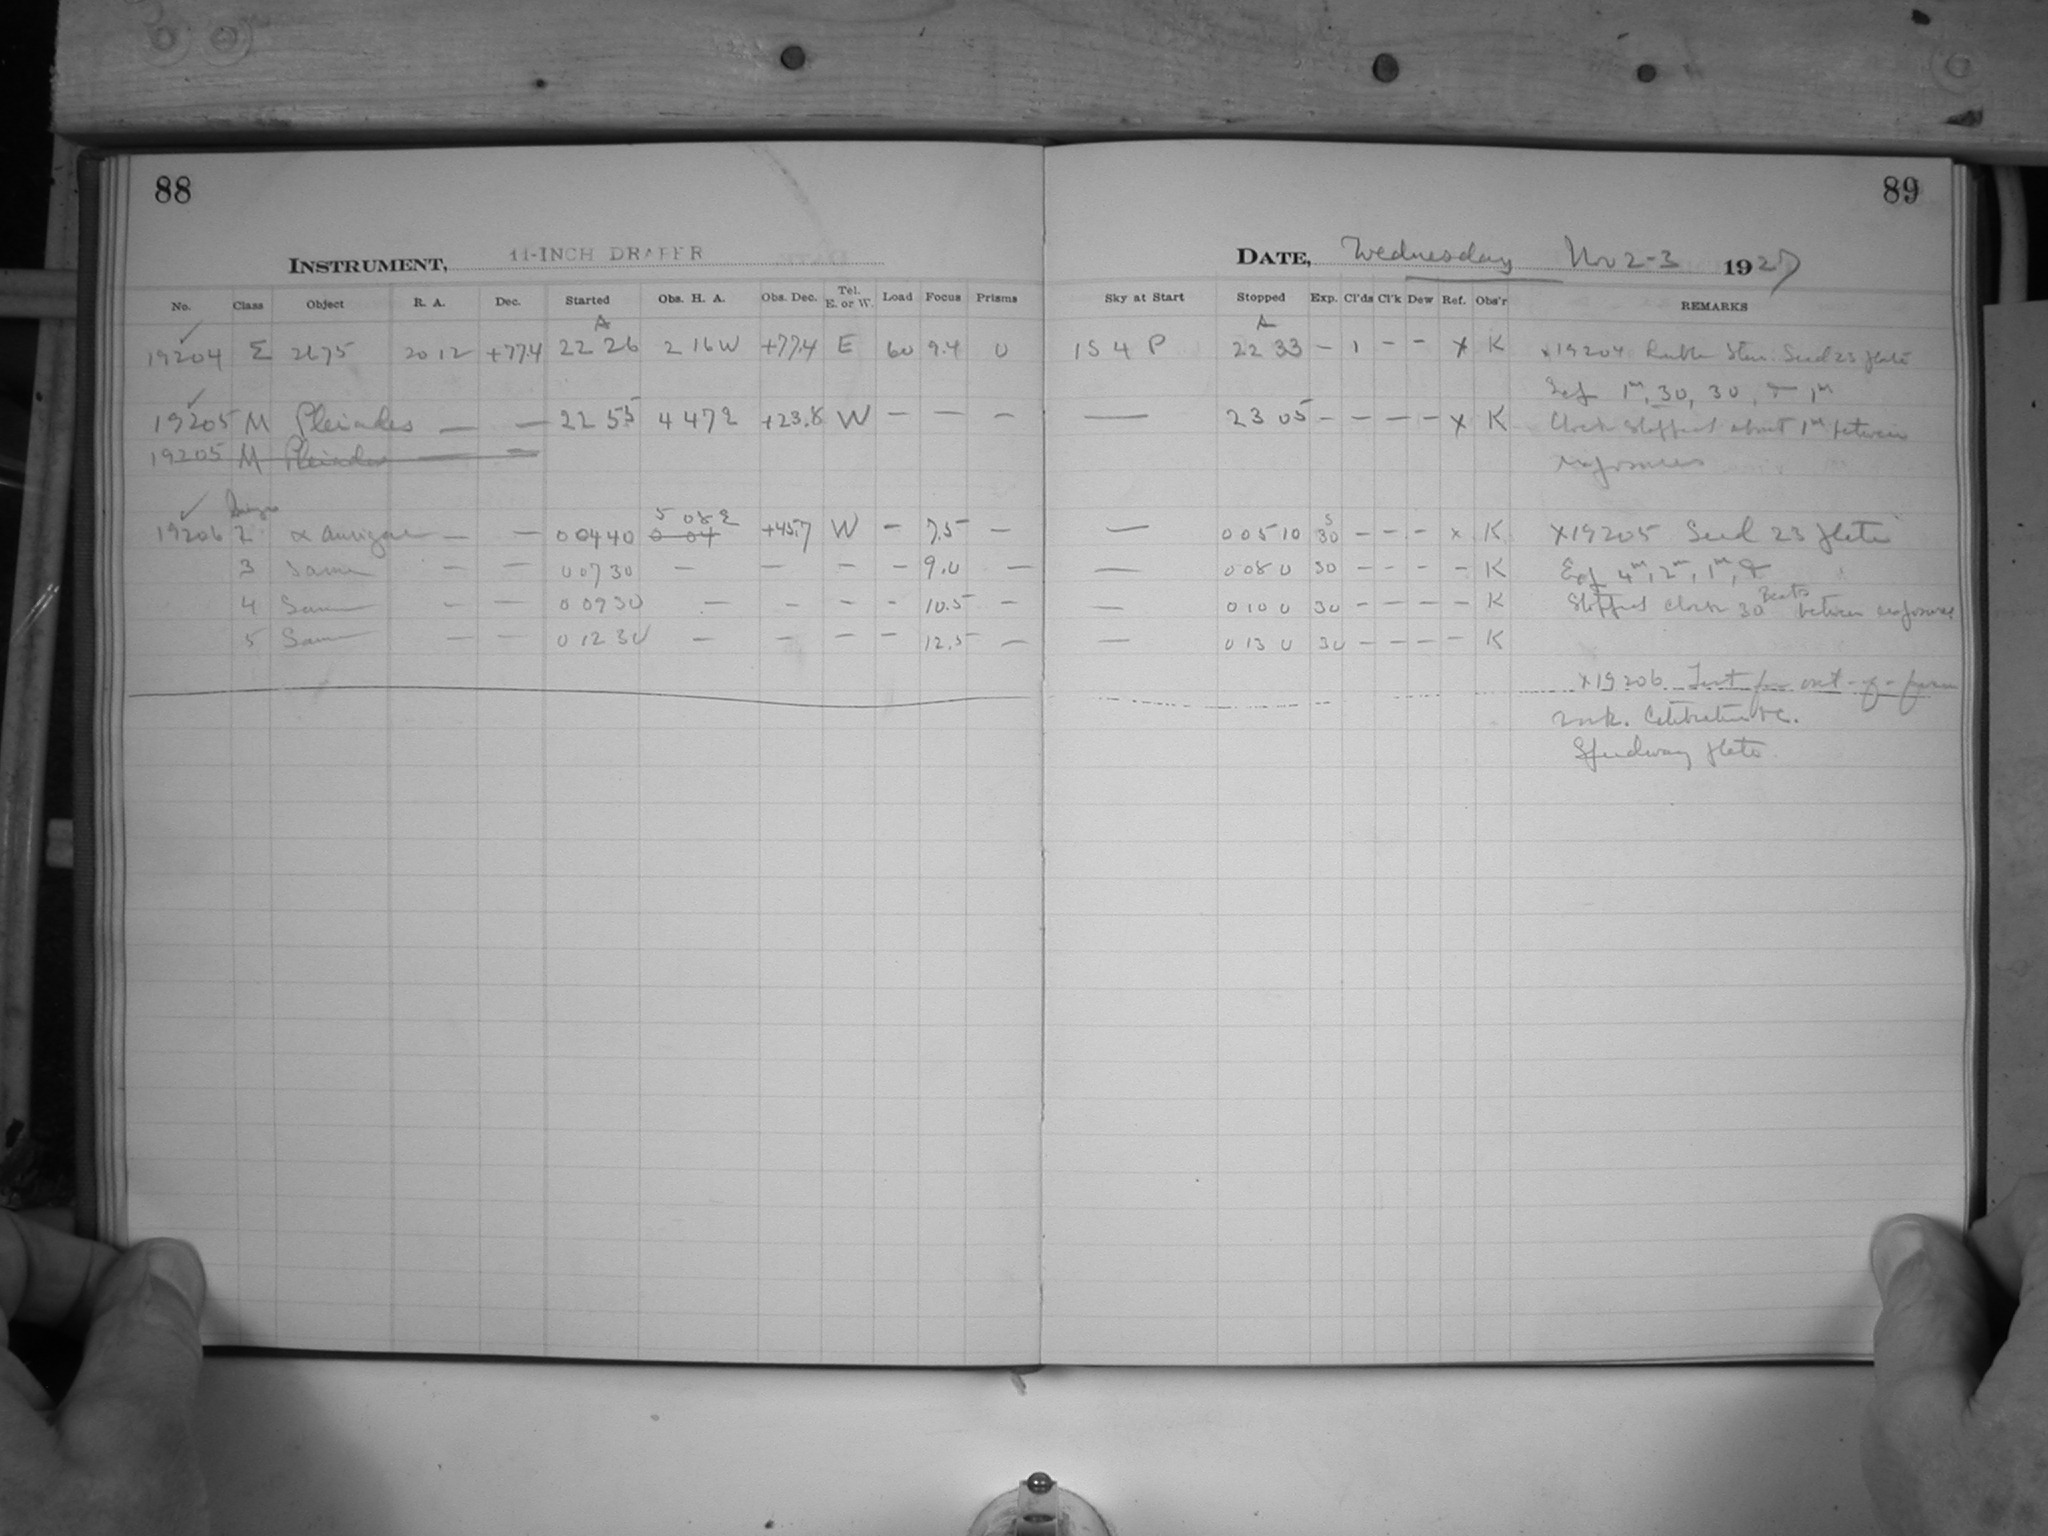 88
INSTRUMENT, 11-INCH DRAPER
No. Class Object R. A. Dec. Started Obs. H. A. Obs. Dec. Tel. E. or W. Load Focus Prisms
A
19204 Σ 2675 20 12 +77.4 22 26 2 16 W +77.4 E 60 9.4 0
19205 M Pleiades — — 22 55 4 47 E +23.8 W — — —
19205 M Pleiades — —
5 08 E
19206 2 α Aurigae — — 0 04 40 0 04 +45.7 W — 7.5 —
3 Same — — 0 07 30 — — — — 9.0 —
4 Same — — 0 09 30 — — — — 10.5 —
5 Same — — 0 12 30 — — — — 12.5 —
89
DATE, Wednesday Nov 2-3 1927
Sky at Start Stopped Exp. Cl'ds Cl'k Dew Ref. Obs'r REMARKS
A
1S 4 P 22 33 — 1 — — x K x19204 Double Star. Seed 23 plate
1m, 30, 30, + 1m
— 23 05 — — — — x K Clock stopped about 1m between
exposures
s
— 0 05 10 30 — — — x K x19205 Seed 23 plate
— 0 08 0 30 — — — — K Exp 4m, 2m, 1m, +
Beats
— 0 10 0 30 — — — — K Stopped clock 30 between exposures
— 0 13 0 30 — — — — K
x19206 Test for out-of-focus
work. Calibration &c.
Speedway plate